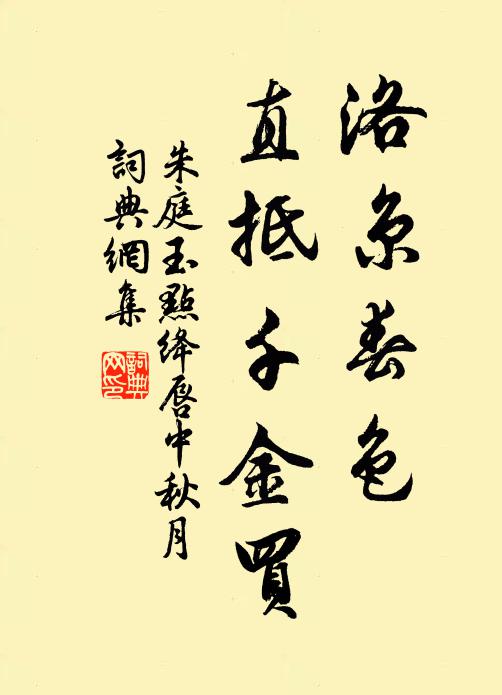 洛京春色
直抵千金買
朱庭玉點绛唇中秋月
詞典網集
詞典
网印